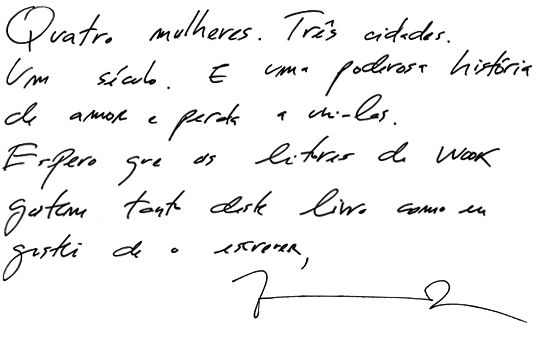 Quatro mulheres. Três cidades.
Um século. E uma poderosa história
de amor e perda a uni-las.
Espero que os leitores da WOOK
gostem tanto deste livro como eu
gostei de o escrever,